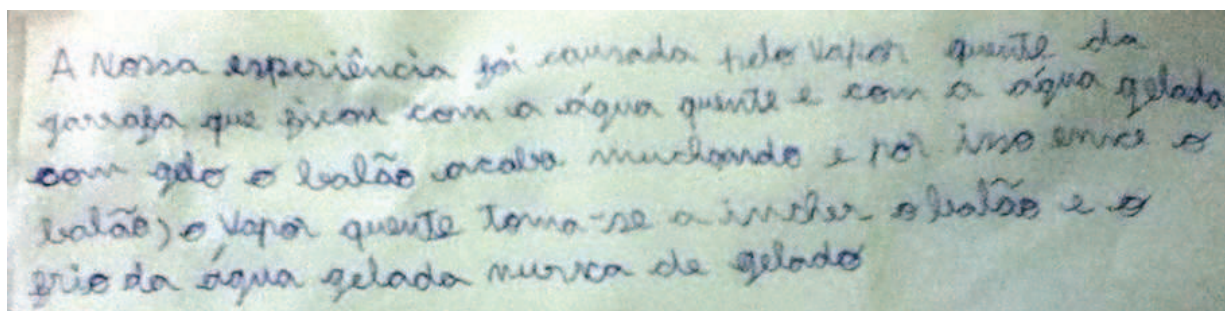 A Nossa esperiência foi causada pelo Vapor quente da
garrafa que ficou com a água quente e com a água gelada
com gelo o balão acaba muchando e por isso ence o
balão) o Vapor quente torna-se a incher o balão e o
frio da água gelada mursca de gelado